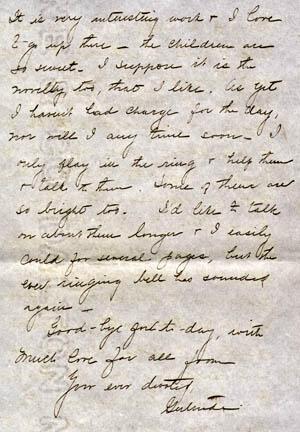 It is very interesting work & I love
to go up there – the children are
so sweet. I suppose it is the
novelty, too, that I like. As yet
I haven't had charge for the day,
nor will I any time soon – I
only play in the ring & help them
& talk to them. Some of them are
so bright too. I'd like to talk
on about them longer & I easily
could for several pages, but the
ever ringing bell has sounded
again –
Good-bye for to-day, with
much love for all from
Your ever devoted